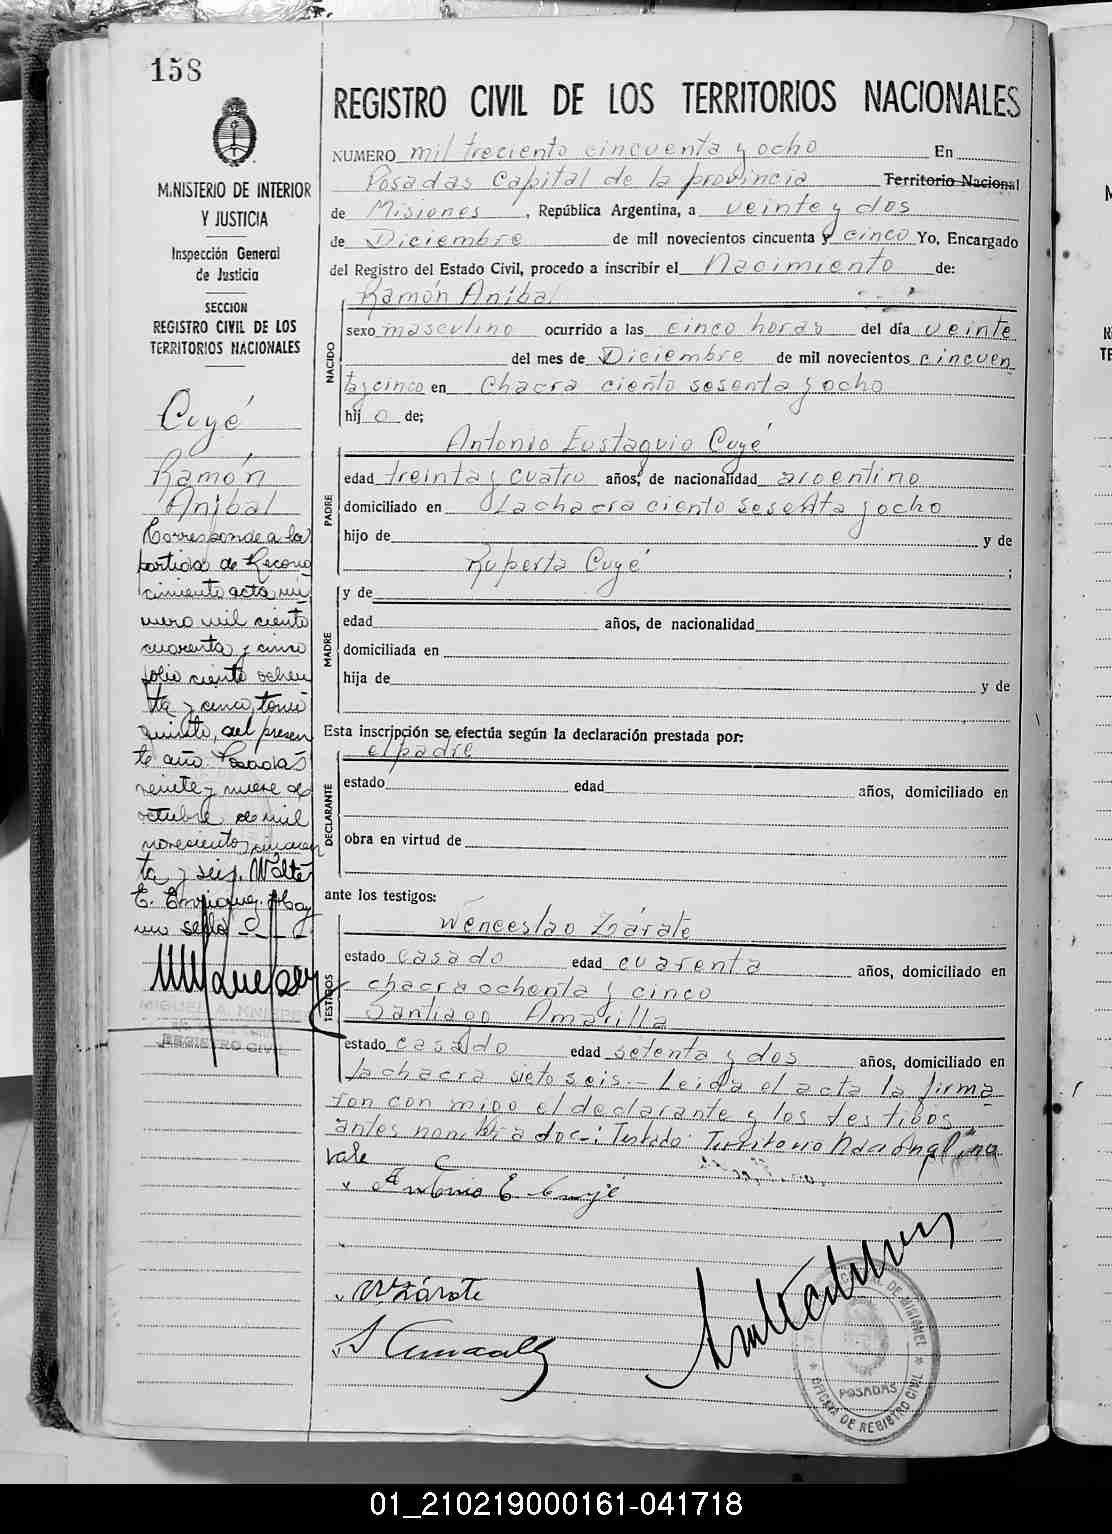 158
MINISTERIO DE INTERIOR
Y JUSTICIA
Inspección General
de Justicia
SECCION
REGISTRO CIVIL DE LOS
TERRITORIOS NACIONALES
Cuyé
Ramón
Aníbal
Corresponde a la
partida de Recono
cimiento acta nu
mero mil ciento
cuarenta y cinco
folio ciento ochen
ta y cinco, tomo
quinto, del presen
te año. Posadas
veinte y nueve de
octubre de mil
novecientos cincuen
ta y seis. Walter
E. Enriquez. Hay
un sello
MIGUEL A.
REGISTRO CIVIL
REGISTRO CIVIL DE LOS TERRITORIOS NACIONALES
NUMERO mil treciento cincuenta y ocho En
Posadas Capital de la provincia Territorio Nacional
de Misiones, República Argentina, a veinte y dos
de Diciembre de mil novecientos cincuenta y cinco Yo, Encargado
del Registro del Estado Civil, procedo a inscribir el Nacimiento de:
NACIDO
Ramón Aníbal
sexo masculino ocurrido a las cinco horas del día veinte
del mes de Diciembre de mil novecientos cincuen
ta y cinco en Chacra ciento sesenta y ocho
hij o de;
PADRE
Antonio Eustaquio Cuyé
edad treinta y cuatro años, de nacionalidad argentino
domiciliado en la chacra ciento sesenta y ocho
hijo de y de
Ruperta Cuyé ;
MADRE
y de
edad años, de nacionalidad
domiciliada en
hija de y de
Esta inscripción se efectúa según la declaración prestada por:
DECLARANTE
el padre
estado edad años, domiciliado en
obra en virtud de
ante los testigos:
TESTIGOS
Wenceslao Zárate
estado casado edad cuarenta años, domiciliado en
chacra ochenta y cinco
Santiago Amarilla
estado casado edad setenta y dos años, domiciliado en
la chacra sieto seis.- Leida el acta la firma
ron con migo el declarante y los testigos
antes nombrados-: Testado: Territorio Nacional no
vale
Antonio E Cuyé
W Zárate
S Amarilla
POSADAS
OFICINA DE REGISTRO CIVIL
01_210219000161-041718